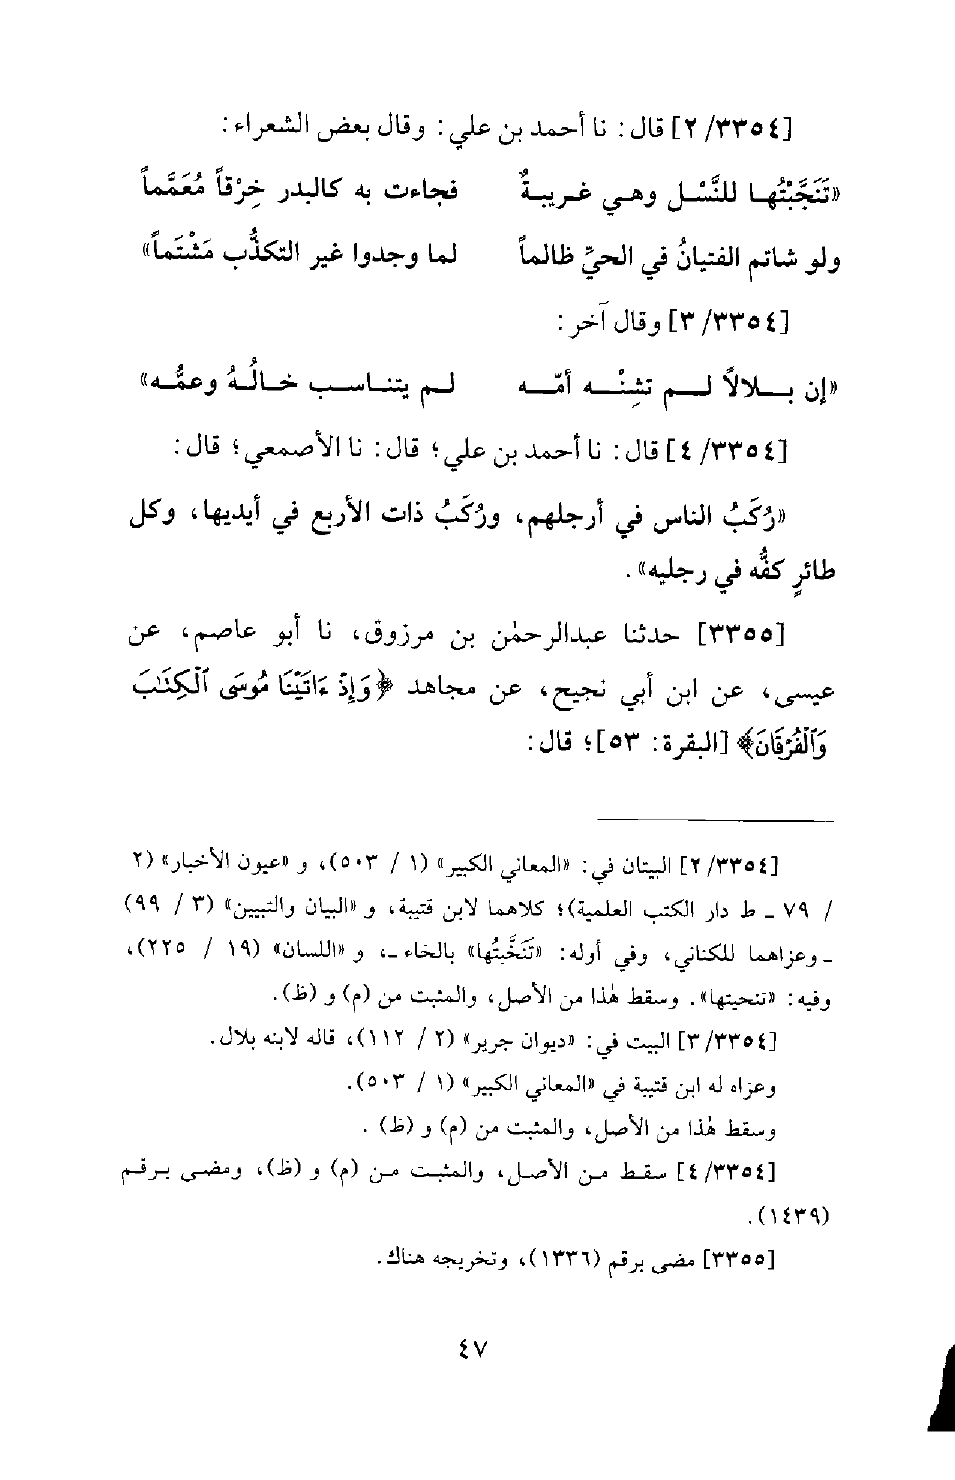 [٣٣٥٤/ ٢] قال: نا أحمد بن علي: وقال بعض الشعراء:
«تَنَجَّبْتُها للنَّسْل وهي غريبةٌ فجاءت به كالبدر خِرْقاً مُعَمَّماً
ولو شاتم الفتيانُ في الحيِّ ظالماً لما وجدوا غير التكذُّب مَشْتَماً»
[٣٣٥٤/ ٣] وقال آخر:
«إن بــلالاً لــم تشِنْــه أمّــه لــم يتنــاسب خــالُــهُ وعمُّــه»
[٣٣٥٤/ ٤] قال: نا أحمد بن علي؛ قال: نا الأصمعي؛ قال:
«رُكَبُ الناس في أرجلهم، ورُكَبُ ذات الأربع في أيديها، وكل
طائرٍ كفُّه في رجليه».
[٣٣٥٥] حدثنا عبدالرحمٰن بن مرزوق، نا أبو عاصم، عن
عيسى، عن ابن أبي نجيح، عن مجاهد ﴿وَإِذْ ءَاتَيْنَا مُوسَى ٱلْكِتَٰبَ
وَٱلْفُرْقَانَ﴾ [البقرة: ٥٣]؛ قال:
[٣٣٥٤/ ٢] البيتان في: «المعاني الكبير» (١ / ٥٠٣)، و «عيون الأخبار» (٢
/ ٧٩ ـ ط دار الكتب العلمية)؛ كلاهما لابن قتيبة، و «البيان والتبيين» (٣ / ٩٩)
ـ وعزاهما للكناني، وفي أوله: «تَنَخَّبْتُها» بالخاء ـ، و «اللسان» (١٩ / ٢٢٥)،
وفيه: «تنحيتها». وسقط هٰذا من الأصل، والمثبت من (م) و (ظ).
[٣٣٥٤/ ٣] البيت في: «ديوان جرير» (٢ / ١١٢)، قاله لابنه بلال.
وعزاه له ابن قتيبة في «المعاني الكبير» (١ / ٥٠٣).
وسقط هٰذا من الأصل، والمثبت من (م) و (ظ) .
[٣٣٥٤/ ٤] سقط من الأصل، والمثبت من (م) و (ظ)، ومضى برقم
(١٤٣٩).
[٣٣٥٥] مضى برقم (١٣٣٦)، وتخريجه هناك.
٤٧